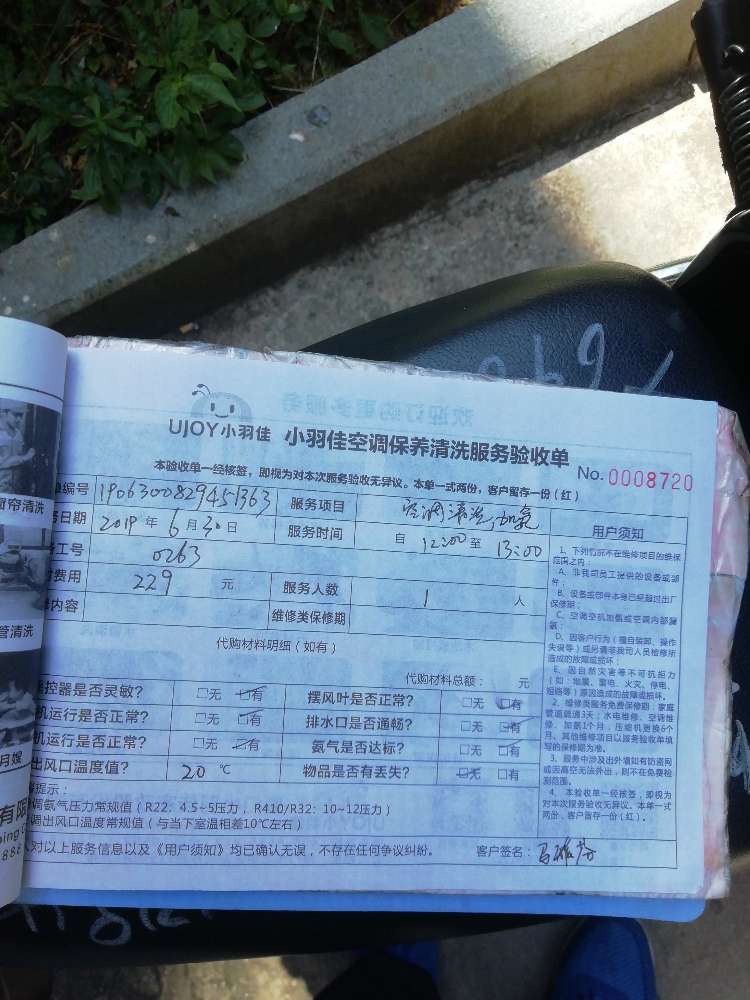 欢迎订购更多服务
UJOY小羽佳 小羽佳空调保养清洗服务验收单
本验收单一经核签，即视为对本次服务验收无异议。本单一式两份，客户留存一份（红）
No. 0008720
单编号 1906300829451363 服务项目 空调清洗,加氨
务日期 2019 年 6 月 30 日 服务时间 自 12:00 至 13:00
工号 0263
费用 229 元 服务人数 1 人
内容 维修类保修期
代购材料明细（如有）
代购材料总额： 元
控器是否灵敏? □无 □有 摆风叶是否正常? □无 □有
机运行是否正常? □无 □有 排水口是否通畅? □无 □有
机运行是否正常? □无 □有 氨气是否达标? □无 □有
出风口温度值? 20 ℃ 物品是否有丢失? □无 □有
提示：
调氨气压力常规值（R22：4.5~5压力，R410/R32：10~12压力）
调出风口温度常规值（与当下室温相差10℃左右）
对以上服务信息以及《用户须知》均已确认无误，不存在任何争议纠纷。 客户签名：
用户须知
1、下列情况不在维修项目的维保范围之内：
A、非我司员工提供的设备或部件；
B、设备或部件本身已经超过出厂保修期；
C、空调空机加氨或空调内部漏氨；
D、因客户行为（擅自装卸、操作失误等）或另请非我司人员检修所造成的故障或损坏；
E、因自然灾害等不可抗力（如：地震、雷电、火灾、停电、短路等）原因造成的故障或损坏。
2、维修类服务免费保修期：家庭管道疏通3天；水电维修、空调维修、加氨1个月，压缩机更换6个月，其他维修项目以服务验收单填写的保修期为准。
3、服务中涉及出外墙如有防盗网或因高空无法外出，则不在免费检测范围。
4、本验收单一经核签，即视为对本次服务验收无异议。本单一式两份，客户留存一份（红）。
窗帘清洗
管清洗
月嫂
有限
888